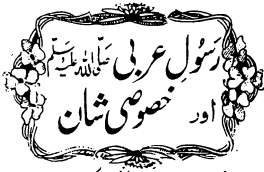 رسولِ عربی صلی اللہ علیہ وسلم
اور خصوصی شان